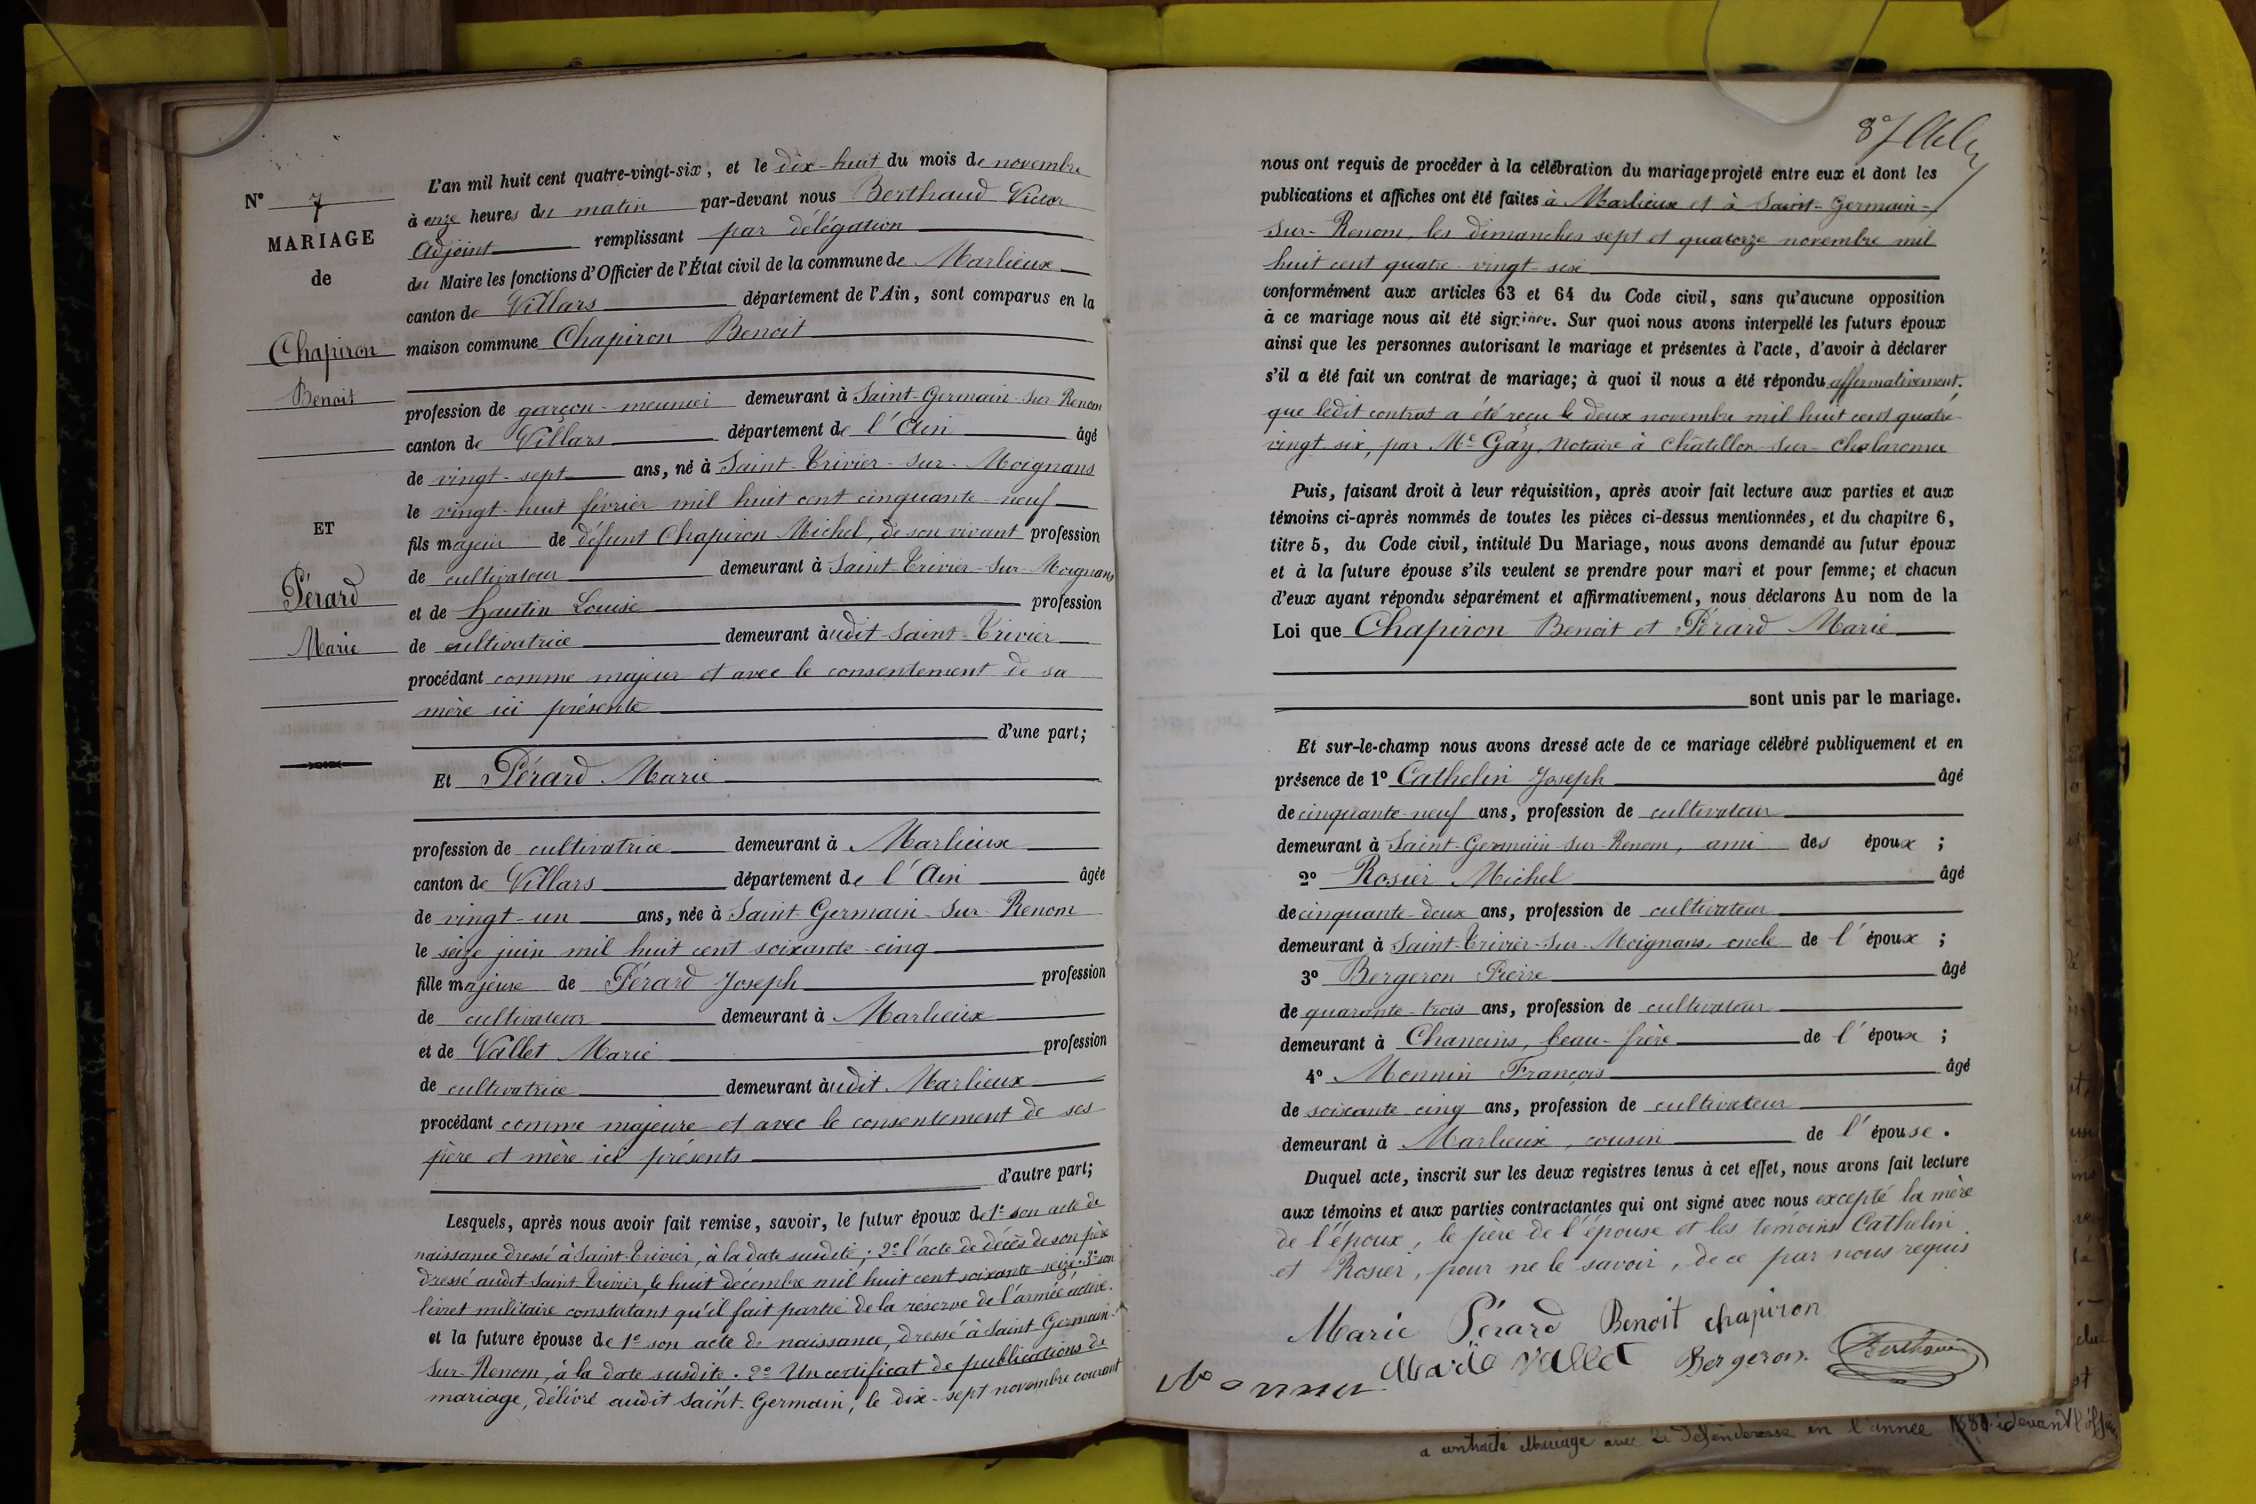 N° 7
MARIAGE
de
Chapiron
Benoit
ET
Pérard
Marie
L'an mil huit cent quatre-vingt-six, et le dix-huit du mois de novembre
à onze heures du matin par-devant nous Berthaud Victor
Adjoint remplissant par délégation
du Maire les fonctions d'Officier de l'État civil de la commune de Marlieux
canton de Villars département de l'Ain, sont comparus en la
maison commune Chapiron Benoit
profession de garçon-meunier demeurant à Saint-Germain-sur-Renom
canton de Villars département de l'Ain âgé
de vingt-sept ans, né à Saint-Trivier-sur-Moignans
le vingt-huit février mil huit cent cinquante-neuf
fils majeur de défunt Chapiron Michel, de son vivant profession
de cultivateur demeurant à Saint-Trivier-sur-Moignans
et de Hautin Louise profession
de cultivatrice demeurant audit Saint-Trivier
procédant comme majeur et avec le consentement de sa
mère ici présente
d'une part;
Et Pérard Marie
profession de cultivatrice demeurant à Marlieux
canton de Villars département de l'Ain âgée
de vingt-un ans, née à Saint-Germain-sur-Renom
le seize juin mil huit cent soixante-cinq
fille majeure de Pérard Joseph profession
de cultivateur demeurant à Marlieux
et de Vallet Marie profession
de cultivatrice demeurant audit Marlieux
procédant comme majeure et avec le consentement de ses
père et mère ici présents
d'autre part;
Lesquels, après nous avoir fait remise, savoir, le futur époux de 1° son acte de
naissance dressé à Saint-Trivier, à la date susdite; 2° l'acte de décès de son père
dressé audit Saint-Trivier, le huit décembre mil huit cent soixante-seize. 3° son
livret militaire constatant qu'il fait partie de la réserve de l'armée active.
et la future épouse de 1° son acte de naissance, dressé à Saint-Germain-
sur-Renom, à la date susdite. 2° Un certificat de publications de
mariage, délivré audit Saint-Germain, le dix-sept novembre courant
nous ont requis de procéder à la célébration du mariage projeté entre eux et dont les
publications et affiches ont été faites à Marlieux et à Saint-Germain-
sur-Renom, les dimanches sept et quatorze novembre mil
huit cent quatre-vingt-six
conformément aux articles 63 et 64 du Code civil, sans qu'aucune opposition
à ce mariage nous ait été signifiée. Sur quoi nous avons interpellé les futurs époux
ainsi que les personnes autorisant le mariage et présentes à l'acte, d'avoir à déclarer
s'il a été fait un contrat de mariage; à quoi il nous a été répondu affirmativement.
que ledit contrat a été reçu le deux novembre mil huit cent quatre-
vingt-six, par Me Gay, Notaire à Châtillon-sur-Chalaronne
Puis, faisant droit à leur réquisition, après avoir fait lecture aux parties et aux
témoins ci-après nommés de toutes les pièces ci-dessus mentionnées, et du chapitre 6,
titre 5, du Code civil, intitulé Du Mariage, nous avons demandé au futur époux
et à la future épouse s'ils veulent se prendre pour mari et pour femme; et chacun
d'eux ayant répondu séparément et affirmativement, nous déclarons Au nom de la
Loi que Chapiron Benoit et Pérard Marie
sont unis par le mariage.
Et sur-le-champ nous avons dressé acte de ce mariage célébré publiquement et en
présence de 1° Cathelin Joseph âgé
de cinquante-neuf ans, profession de cultivateur
demeurant à Saint-Germain-sur-Renom, ami des époux;
2° Rosier Michel âgé
de cinquante-deux ans, profession de cultivateur
demeurant à Saint-Trivier-sur-Moignans, oncle de l'époux;
3° Bergeron Pierre âgé
de quarante-trois ans, profession de cultivateur
demeurant à Chaneins, beau-frère de l'époux;
4° Monnin François âgé
de soixante-cinq ans, profession de cultivateur
demeurant à Marlieux, cousin de l'épouse.
Duquel acte, inscrit sur les deux registres tenus à cet effet, nous avons fait lecture
aux témoins et aux parties contractantes qui ont signé avec nous excepté la mère
de l'époux, le père de l'épouse et les témoins Cathelin
et Rosier, pour ne le savoir, de ce par nous requis
Marie Pérard Benoit chapiron
Marie Vallet Bergeron. Berthaud
a contracté Mariage avec la défenderesse en l'année